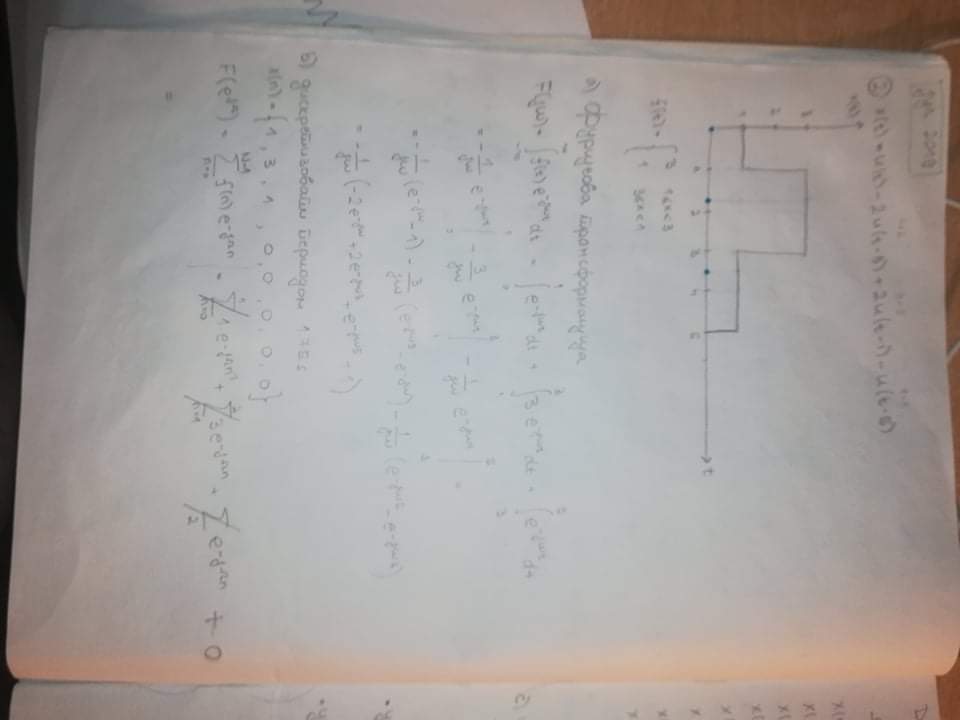 јун 2018
② x(t) = u(t) - 2u(t-3) + 2u(t-1) - u(t-5)
x(t)
3
2
1
1 2 3 4 5 t
f(t) = { 3 1<t<3
1 3<t<1
а) Фуријеова трансформација
F(jω) = ∫ f(t) e^-jωt dt = ∫ e^-jωt dt + ∫ 3 e^-jωt dt + ∫ e^-jωt dt
= -1/jω e^-jωt | - 3/jω e^-jωt | - 1/jω e^-jωt | =
= -1/jω (e^-jω - 1) - 3/jω (e^-jω3 - e^-jω) - 1/jω (e^-jω5 - e^-jω3)
= -1/jω (-2e^-jω + 2e^-jω3 + e^-jω5 - 1)
б) дискретизовати периодом
x(n) = {1, 3, 1, 0, 0, 0, 0, 0}
F(e^jΩ) = Σ f(n) e^-jΩn = Σ 1 e^-jΩn + Σ 3 e^-jΩn + Σ e^-jΩn + 0
=
c)